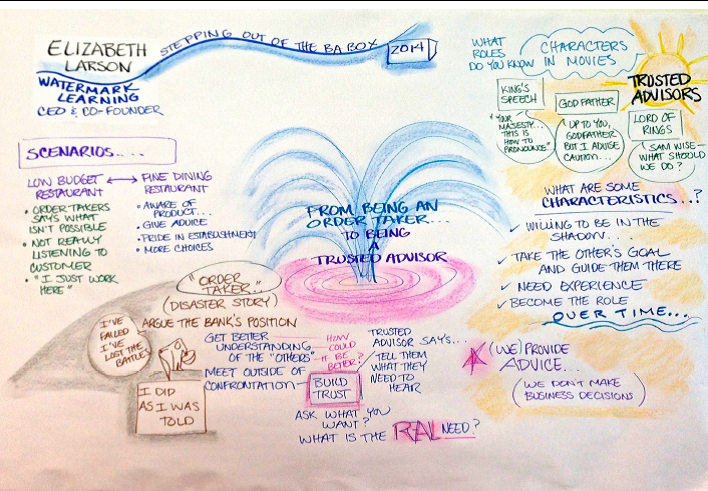 ELIZABETH
LARSON
WATERMARK
LEARNING
CEO & CO-FOUNDER
STEPPING OUT OF THE BA BOX
2014
WHAT
ROLES
DO YOU KNOW
CHARACTERS
IN MOVIES
TRUSTED
ADVISORS
KING'S
SPEECH
"YOUR
MAJESTY...
THIS IS
HOW TO
PRONOUNCE"
GODFATHER
UP TO YOU,
GODFATHER
BUT I ADVISE
CAUTION...
LORD OF
RINGS
SAM WISE-
WHAT SHOULD
WE DO?
SCENARIOS....
LOW BUDGET
RESTAURANT
• ORDER-TAKERS
SAYS WHAT
ISN'T POSSIBLE
• NOT REALLY
LISTENING TO
CUSTOMER
• "I JUST WORK
HERE"
FINE DINING
RESTAURANT
• AWARE OF
PRODUCT...
• GIVE ADVICE
• PRIDE IN ESTABLISHMENT
• MORE CHOICES
FROM BEING AN
ORDER TAKER...
TO BEING
A
TRUSTED ADVISOR
WHAT ARE SOME
CHARACTERISTICS...?
✓ WILLING TO BE IN THE
SHADOW....
✓ TAKE THE OTHER'S GOAL
AND GUIDE THEM THERE
✓ NEED EXPERIENCE
✓ BECOME THE ROLE
OVER TIME...
(WE) PROVIDE
ADVICE...
(WE DON'T MAKE
BUSINESS DECISIONS)
"ORDER
TAKER..."
(DISASTER STORY)
ARGUE THE BANK'S POSITION
I'VE
FAILED
I'VE
LOST THE
BATTLE
I DID
AS I WAS
TOLD
GET BETTER
UNDERSTANDING
OF THE "OTHERS"
MEET OUTSIDE OF
CONFRONTATION
HOW
COULD
IT BE
BETTER?
BUILD
TRUST
TRUSTED
ADVISOR SAYS...
TELL THEM
WHAT THEY
NEED TO
HEAR
ASK WHAT YOU
WANT?
WHAT IS THE REAL NEED?